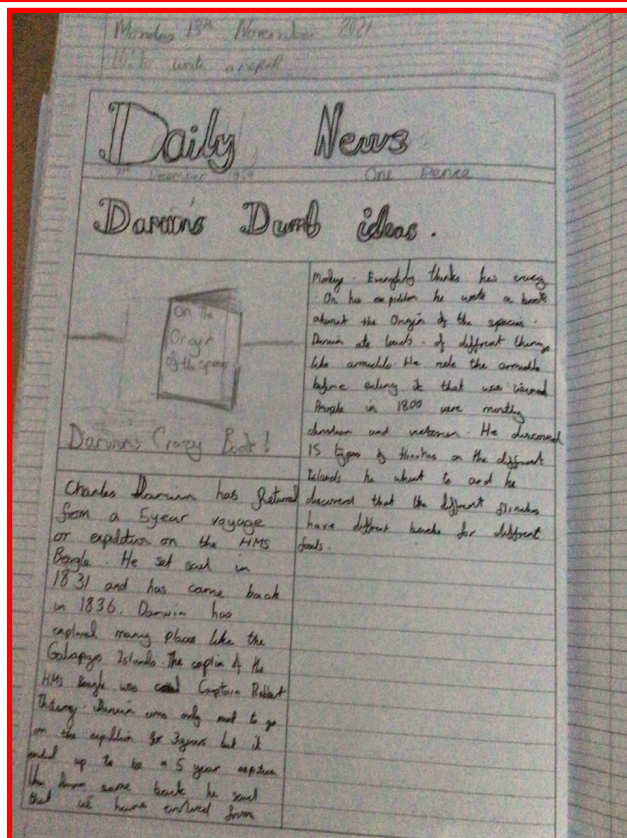 Monday 13th November 2021
write a report
Daily News
7th December 1859 One Pence
Darwin's Dumb ideas.
On The
Origin
of the species
Darwins Crazy Book!
Charles Darwin has Returned
from a 5 year voyage
or expedition on the HMS
Beagle. He set sail in
1831 and has came back
in 1836. Darwin has
explored many places like the
Galapagos Islands. The captin of the
HMS Beagle was Captain Robbert
Darwin was only ment to go
on the for 3 years but it
ended up to be a 5 year
came back he said
that we have evolved from
Monkey. Everybody thinks hes crazy
On his he wrote a book
about the Origin of the species.
Darwin ate loads of diffrent things
like armadillo. He rode the armadillo
before eating it that was
People in 1800 were mostly
christian and He discovred
15 types of finches on the diffrent
Islands he whent to and he
discoverd that the diffrent finches
have diffrent beaks for diffrent
foods.